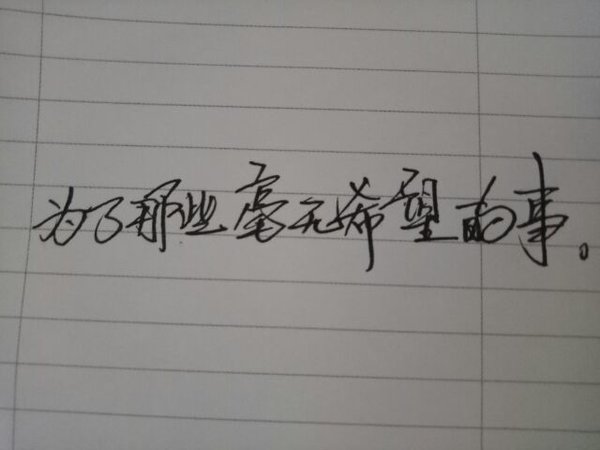 为了那些毫无希望的事。